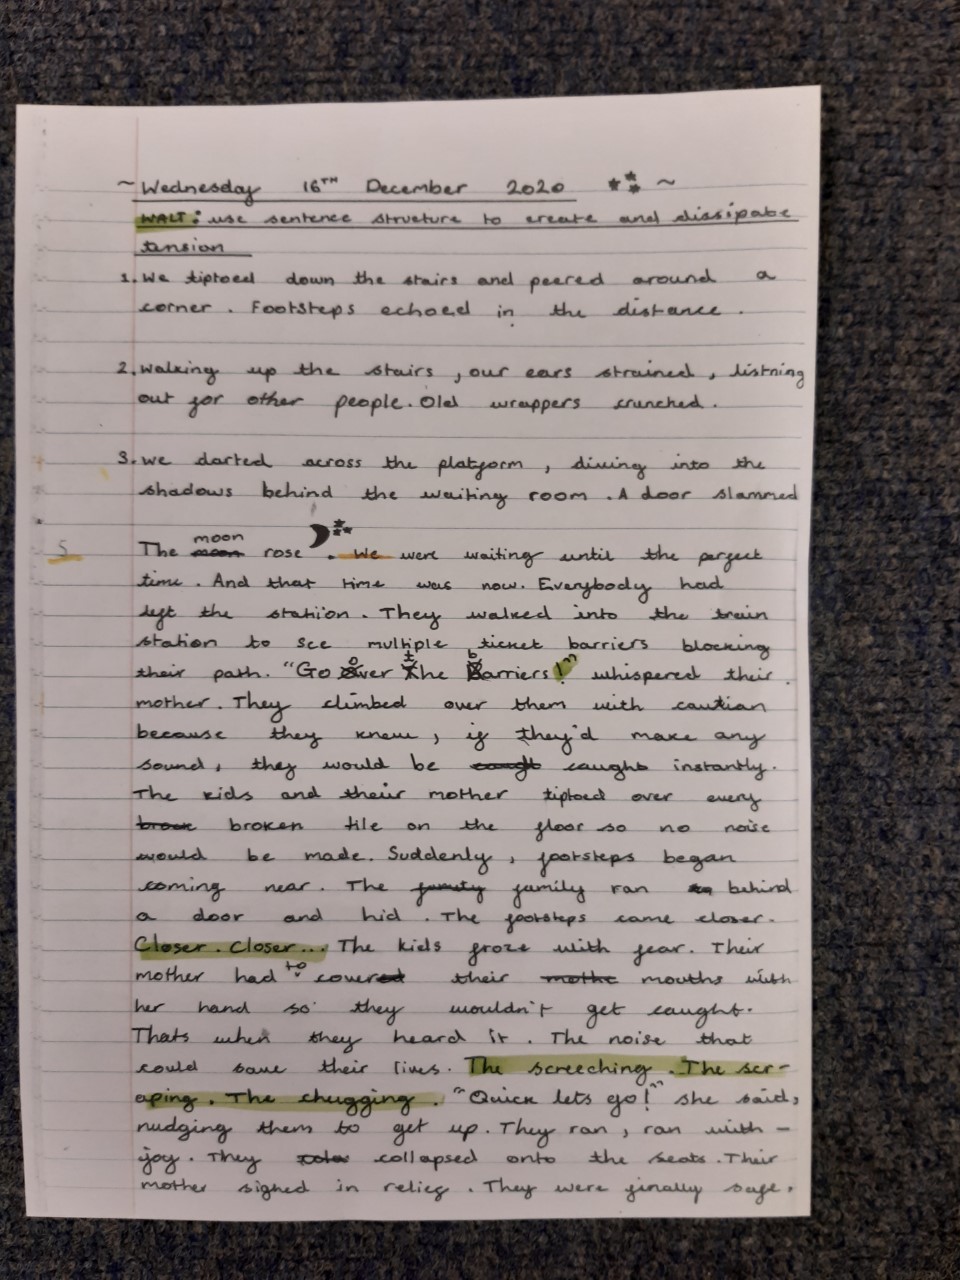 ~ Wednesday 16TH December 2020 ~
WALT: use sentence structure to create and dissipate
tension
1. We tiptoed down the stairs and peered around a
corner. Footsteps echoed in the distance.
2. Walking up the stairs, our ears strained, listning
out for other people. Old wrappers crunched.
3. We darted across the platform, diving into the
shadows behind the waiting room. A door slammed
5
The moon rose. We were waiting until the perfect
time. And that time was now. Everybody had
left the station. They walked into the train
station to see multiple ticket barriers blocking
their path. "Go over the barriers!" whispered their
mother. They climbed over them with caution
because they knew, if they'd make any
sound, they would be caught instantly.
The kids and their mother tiptoed over every
broken tile on the floor so no noise
would be made. Suddenly, footsteps began
coming near. The family ran behind
a door and hid. The footsteps came closer.
Closer. Closer... The kids froze with fear. Their
mother had to cover their mouths with
her hand so they wouldn't get caught.
Thats when they heard it. The noise that
could save their lives. The screeching. The scr-
aping. The chugging. "Quick lets go!" she said,
nudging them to get up. They ran, ran with -
joy. They collapsed onto the seats. Their
mother sighed in relief. They were finally safe.